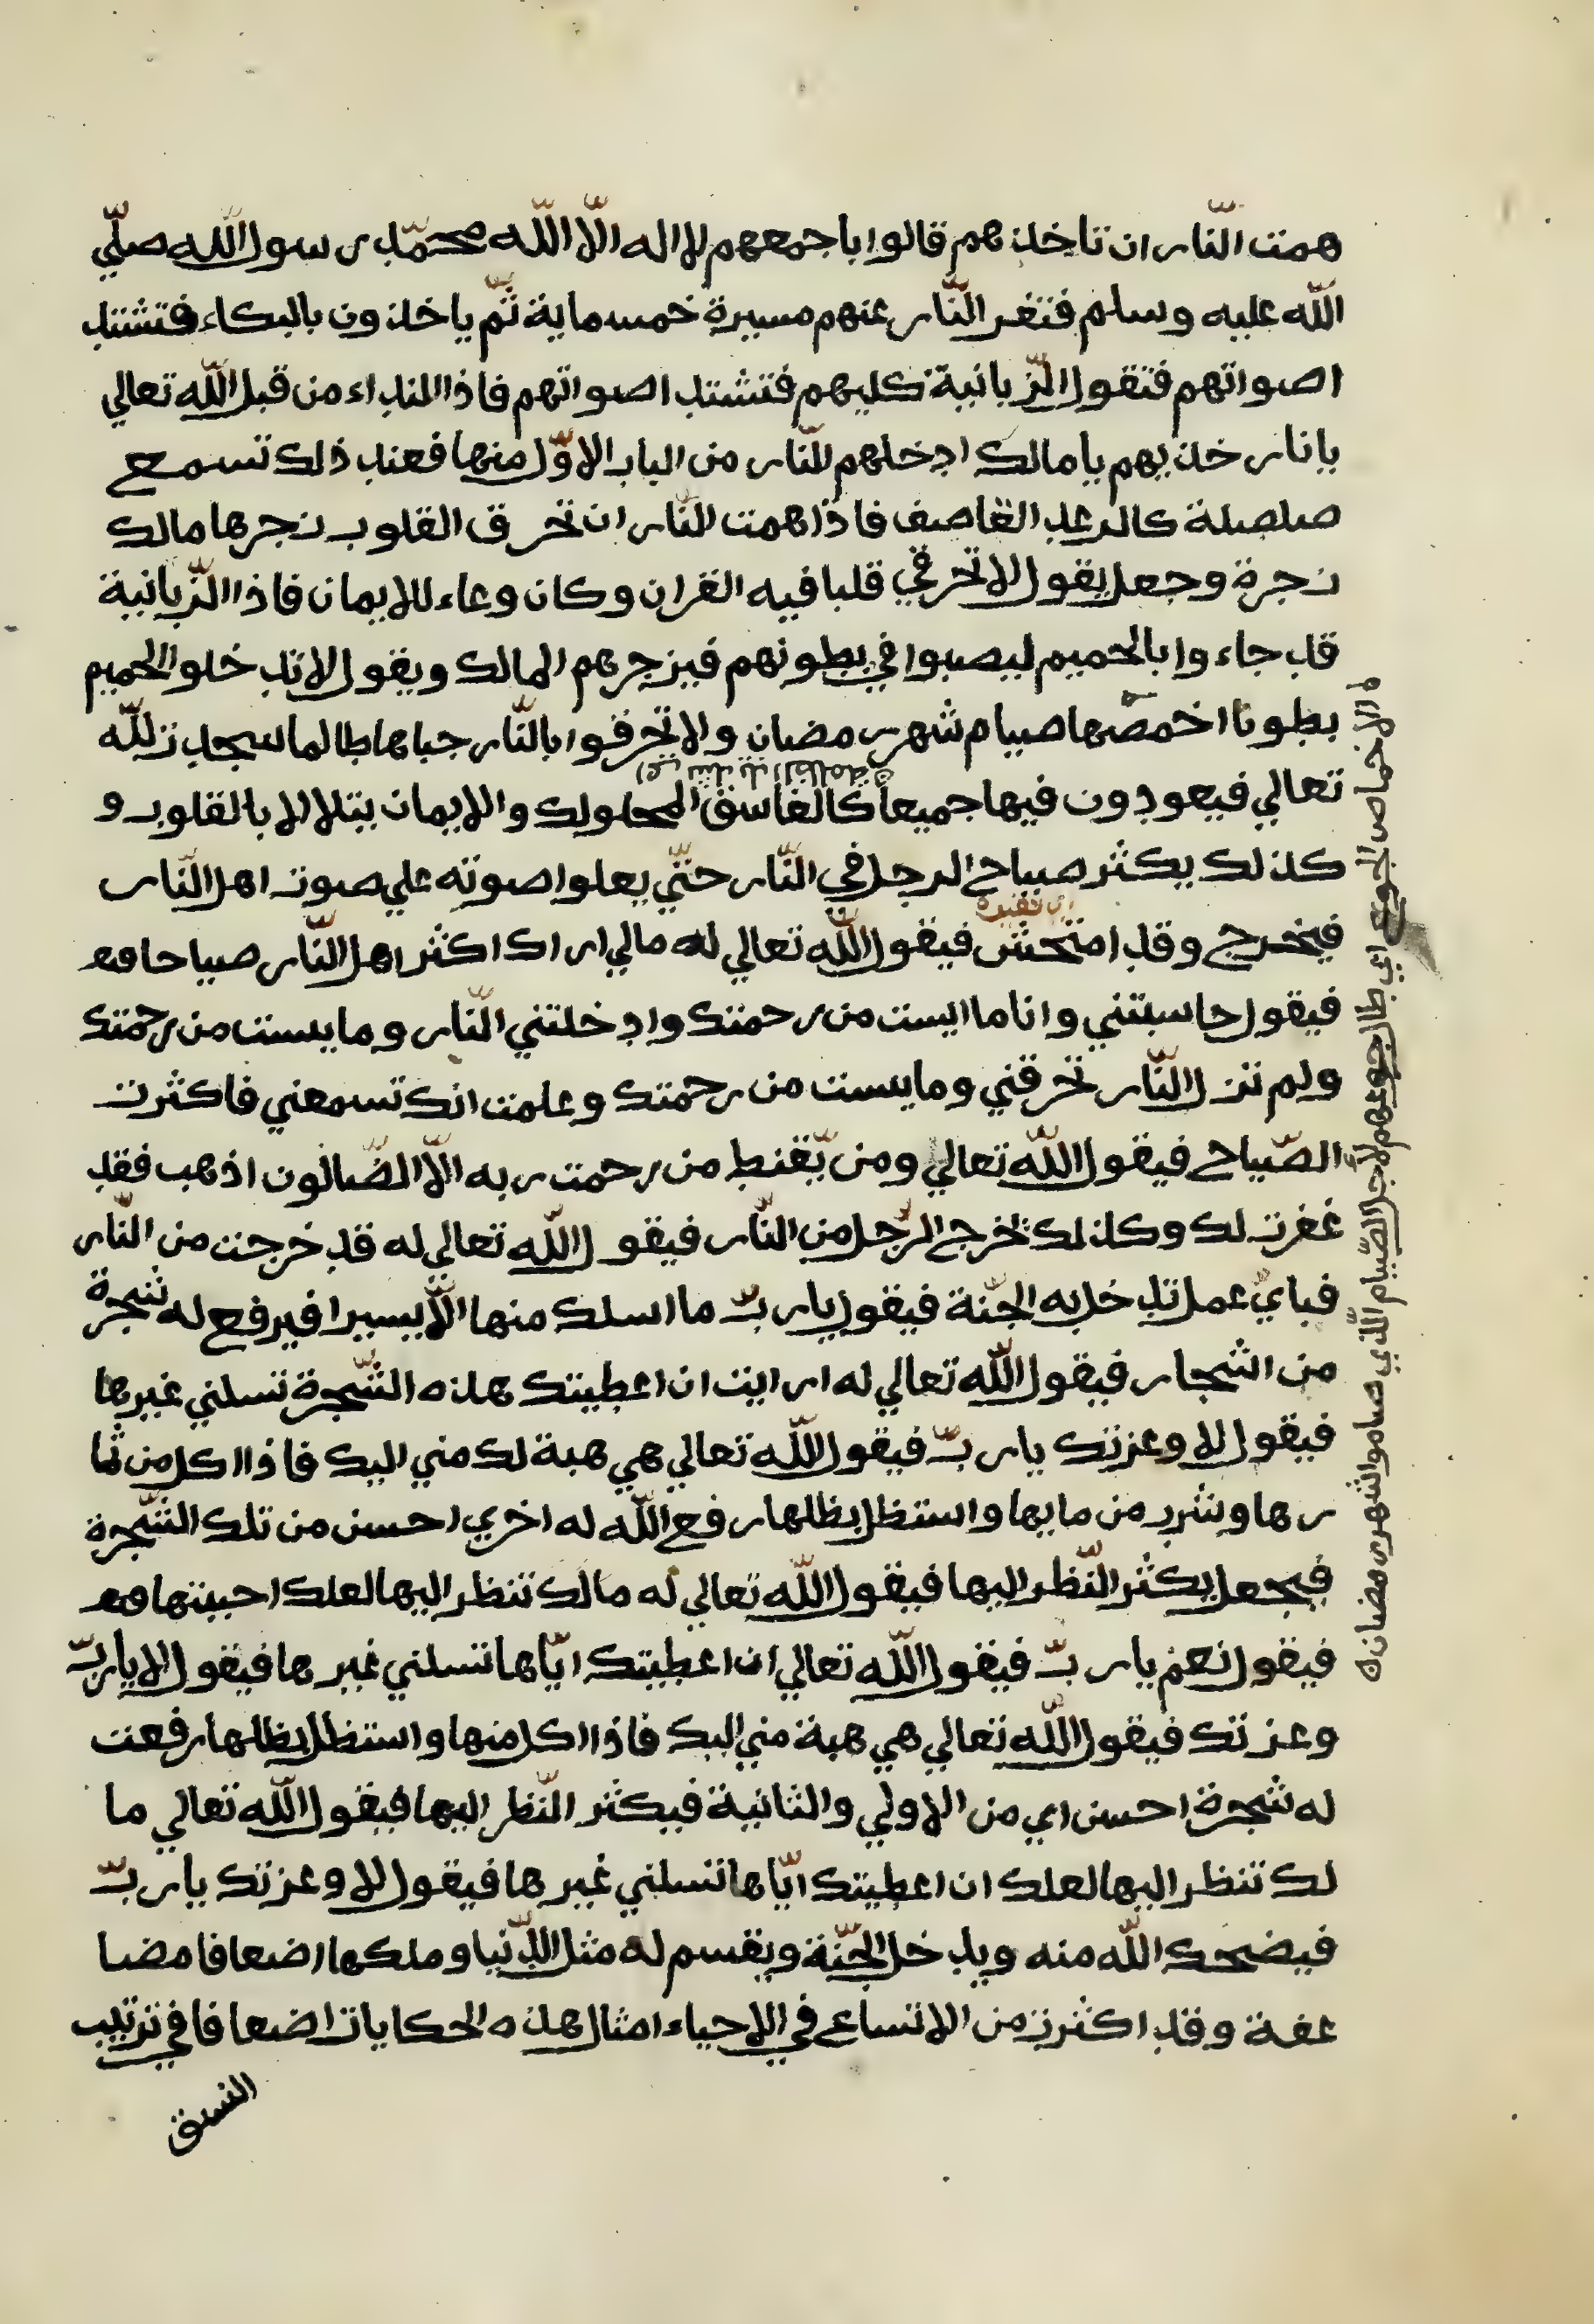 همت النّار ان تاخذهم قالوا باجمعهم لا اله الّا اللّه محمّد رسول اللّه صلّي
اللّه عليه وسلم فتفر النّار عنهم مسيرة خمسماية ثمّ ياخذون بالبكاء فتشتد
اصواتهم فتقول الزّبانية كليهم فتشتد اصواتهم فاذا النداء من قبل اللّه تعالي
يا نار خذيهم يا مالك ادخلهم للنّار من الباب الاوّل منها فعند ذلك تسمع
صلصلة كالرعد القاصف فاذا همت النّار ان تحرق القلوب زجرها مالك
زجرة وجعل يقول لا تحرقي قلبا فيه القران وكان وعاء للايمان فاذا الزّبانية
قد جاءوا بالحميم ليصبوا في بطونهم فيزجرهم المالك ويقول لا تدخلوا الحميم
بطونا اخمصّها صيام شهر رمضان ولا تحرقوا بالنّار جباها طالما سجدت للّه
تعالي فيعودون فيها جميعا كالغاسق المحلولك والايمان يتلالا بالقلوب و
كذلك يكثر صياح الرجل في النّار حتّي يعلوا صوته علي صوت اهل النّار
فيخرج وقد امتحش فيقول اللّه تعالي له مالي اراك اكثر اهل النّار صياحا فهـ
فيقول حاسبتني وانا ما ايست من رحمتك وادخلتني النّار وما يست من رحمتك
ولم تزل النّار تحرقني وما يست من رحمتك وعلمت انك تسمعني فاكثرت
الصّياح فيقول اللّه تعالي ومن يّقنط من رحمت ربه الّا الضّالون اذهب فقد
غفرت لك وكذلك تخرج الرّجل من النّار فيقول اللّه تعالي له قد خرجت من النّار
فباي عمل تدخل به الجّنة فيقول يا ربّ ما اسلك منها الّا يسيرا فيرفع له شجرة
من الشجار فيقول اللّه تعالي له ارايت ان اعطيتك هذه الشّجرة تسلني غيرها
فيقول لا وعزتك يا ربّ فيقول اللّه تعالي هي هبة لك مني اليك فاذا اكل من ثما
رها وشرب من مايها واستظل بظلها رفع اللّه له اخري احسن من تلك الشّجرة
فيجعل يكثر النّظر اليها فيقول اللّه تعالي له مالك تنظر اليها لعلك احببتها فهـ
فيقول نعم يا ربّ فيقول اللّه تعالي ان اعطيتك ايّاها تسلني غيرها فيقول لا يا ربّ
وعزتك فيقول اللّه تعالي هي هبة مني اليك فاذا اكل منها واستظل بظلها رفعت
له شجرة احسن اي من الاولي والثانية فيكثر النّظر اليها فيقول اللّه تعالي ما
لك تنظر اليها لعلك ان اعطيتك ايّاها تسلني غيرها فيقول لا وعزتك يا ربّ
فيضحك اللّه منه ويدخل الجنّة ويقسم له مثل الدّنيا وملكها اضعافا مضا
عفة وقد اكثرت من الاتساع في الاحياء امثال هذه الحكايات اضعافا في ترتيب
النسق
الاخماص الجوع اي طال جوعهم لاجل الصّيام الّذي صاموا لشهر رمضان
اي شديد الظلمة